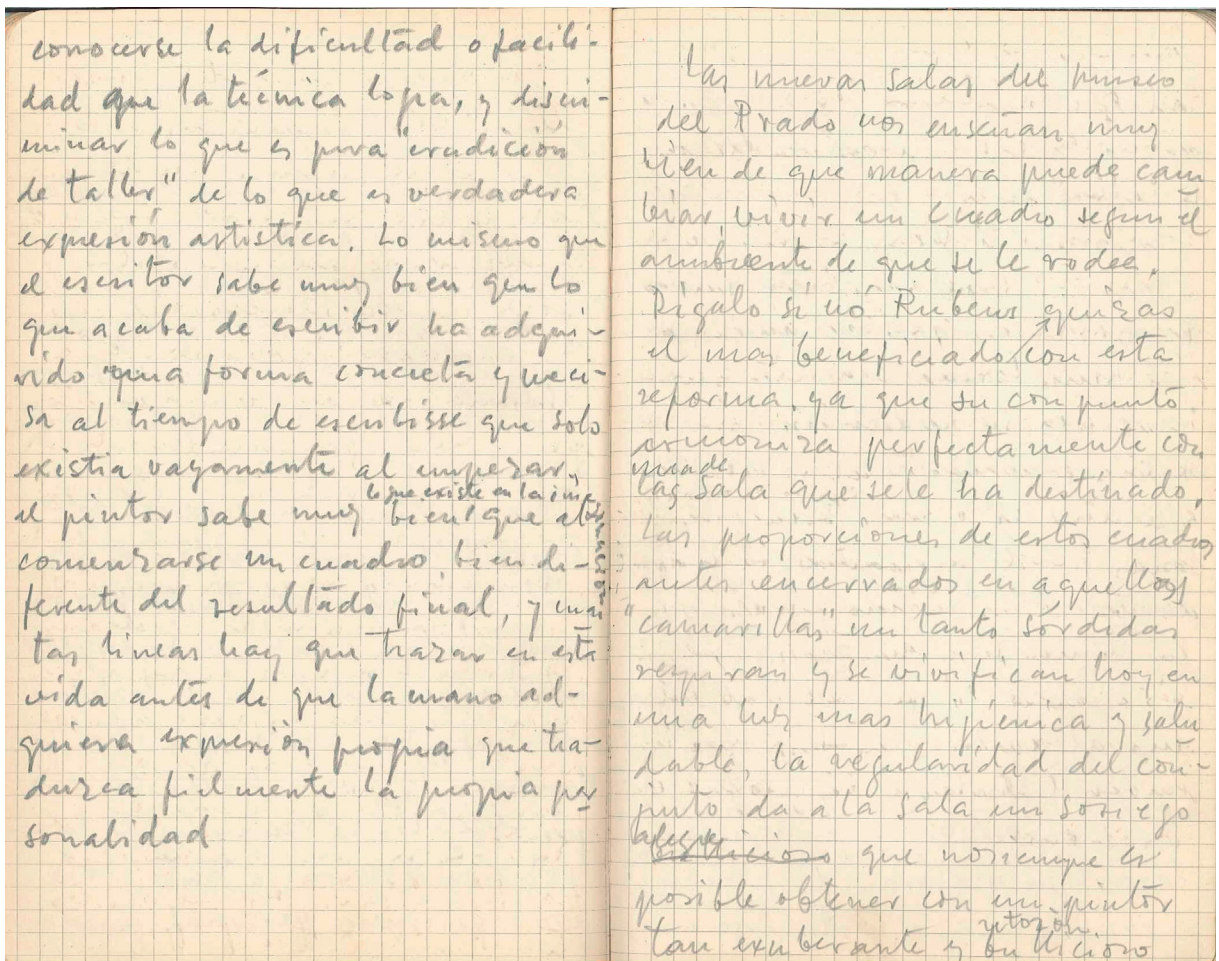 conocerse la dificultad o facili-
dad que la técnica logra, y discri-
minar lo que es pura "erudición
de taller" de lo que es verdadera
expresión artistica. Lo mismo que
el escritor sabe muy bien que lo
que acaba de escribir ha adqui-
rido una forma concreta y preci-
sa al tiempo de escribirse que solo
existia vagamente al empezar,
lo que existe en la ima
ginación
el pintor sabe muy bien que al
comenzarse un cuadro, bien di-
ferente del resultado final, y cuan
tas lineas hay que trazar en esta
vida antes de que la mano ad-
quiera expresión propia que tra-
duzca fielmente la propia per
sonalidad
Las nuevas salas del museo
del Prado nos enseñan muy
bien de que manera puede cam
biar, vivir un cuadro según el
ambiente de que se le rodee.
Digalo si nó Rubens quizas
el mas beneficiado con esta
reforma, ya que su conjunto
armoniza perfectamente con
la sala que se le ha destinado.
Las proporciones de estos cuadros
antes encerrados en aquellos
"camarillas" un tanto sórdidas
respiran y se vivifican hoy en
una luz mas higienica y salu
dable, la regularidad del con-
junto da a la sala un sosiego
alegre
bullicioso que no siempre es
posible obtener con un pintor
tan exuberante y bullicioso